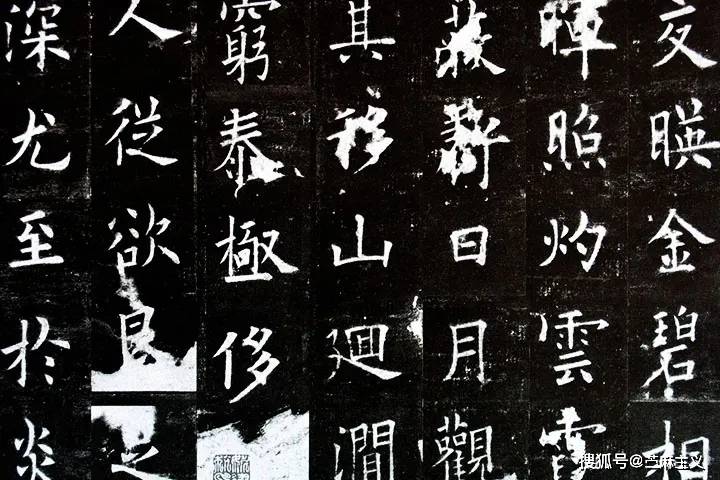 交暎金碧相
暉照灼雲霞
蔽虧日月觀
其移山廻澗
窮泰極侈
人從欲良
深尤至於炎
搜狐号@芝麻主义